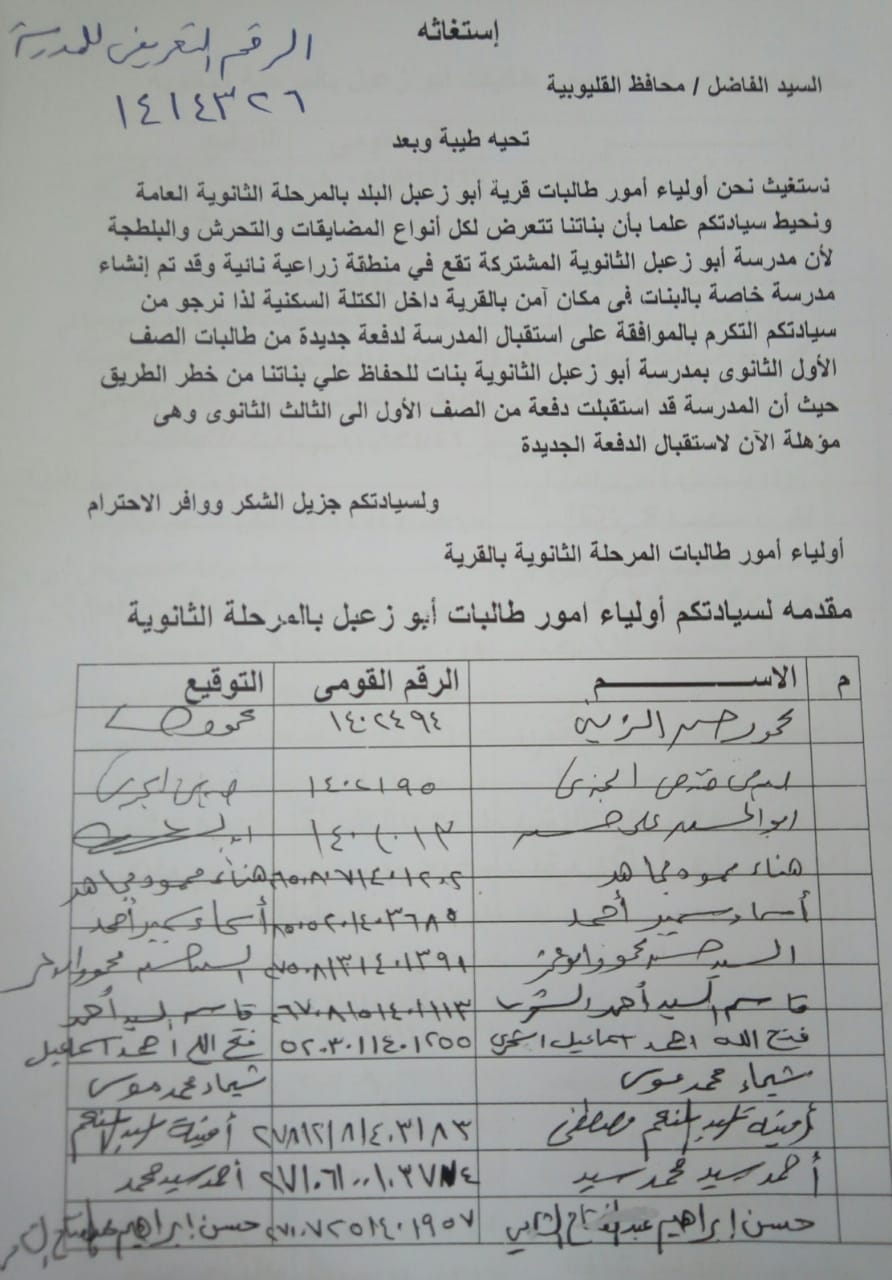 إستغاثه
الرقم التعريفى للمدرسة
١٤١٤٣٢٦
السيد الفاضل / محافظ القليوبية
تحيه طيبة وبعد
نستغيث نحن أولياء أمور طالبات قرية أبو زعبل البلد بالمرحلة الثانوية العامة
ونحيط سيادتكم علما بأن بناتنا تتعرض لكل أنواع المضايقات والتحرش والبلطجة
لأن مدرسة أبو زعبل الثانوية المشتركة تقع في منطقة زراعية نائية وقد تم إنشاء
مدرسة خاصة بالبنات فى مكان آمن بالقرية داخل الكتلة السكنية لذا نرجو من
سيادتكم التكرم بالموافقة على استقبال المدرسة لدفعة جديدة من طالبات الصف
الأول الثانوى بمدرسة أبو زعبل الثانوية بنات للحفاظ علي بناتنا من خطر الطريق
حيث أن المدرسة قد استقبلت دفعة من الصف الأول الى الثالث الثانوى وهى
مؤهلة الآن لاستقبال الدفعة الجديدة
ولسيادتكم جزيل الشكر ووافر الاحترام
أولياء أمور طالبات المرحلة الثانوية بالقرية
مقدمه لسيادتكم أولياء امور طالبات أبو زعبل بالمرحلة الثانوية
م الاســــــــم الرقم القومى التوقيع
محمود حسن ١٤٠٢٤٩٤ محمود
١٤٠٢١٩٥
ابو الحسن على حسن
هناء محمود مجاهد هناء محمود مجاهد
أسماء سمير أحمد أسماء سمير أحمد
السيد حسن محمود السيد حسن محمود
قاسم السيد أحمد قاسم السيد أحمد
فتح الله احمد اسماعيل ٥٢٠٣٠١١٤٠١٢٥٥ فتح الله احمد اسماعيل
شيماء محمد موسى شيماء محمد موسى
أمينة عبد المنعم مصطفى ٢٧٨١٢١٨١٤٠٣١٨٣ أمينة عبد المنعم
أحمد سيد محمد سيد أحمد سيد محمد
حسن إبراهيم عبد الفتاح ٢٧١٠٠٧٢٥١٤٠١٩٥٧ حسن إبراهيم عبد الفتاح